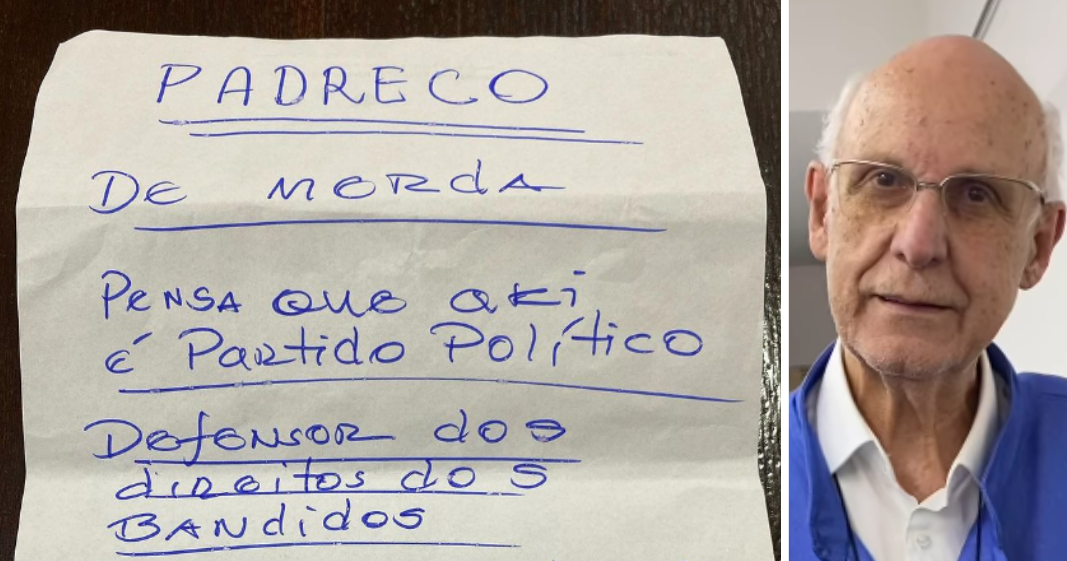 PADRECO
DE MERdA
PENSA QUE aKi
é Partido Político
DefENSOR dos
direitos dos
BANdidos